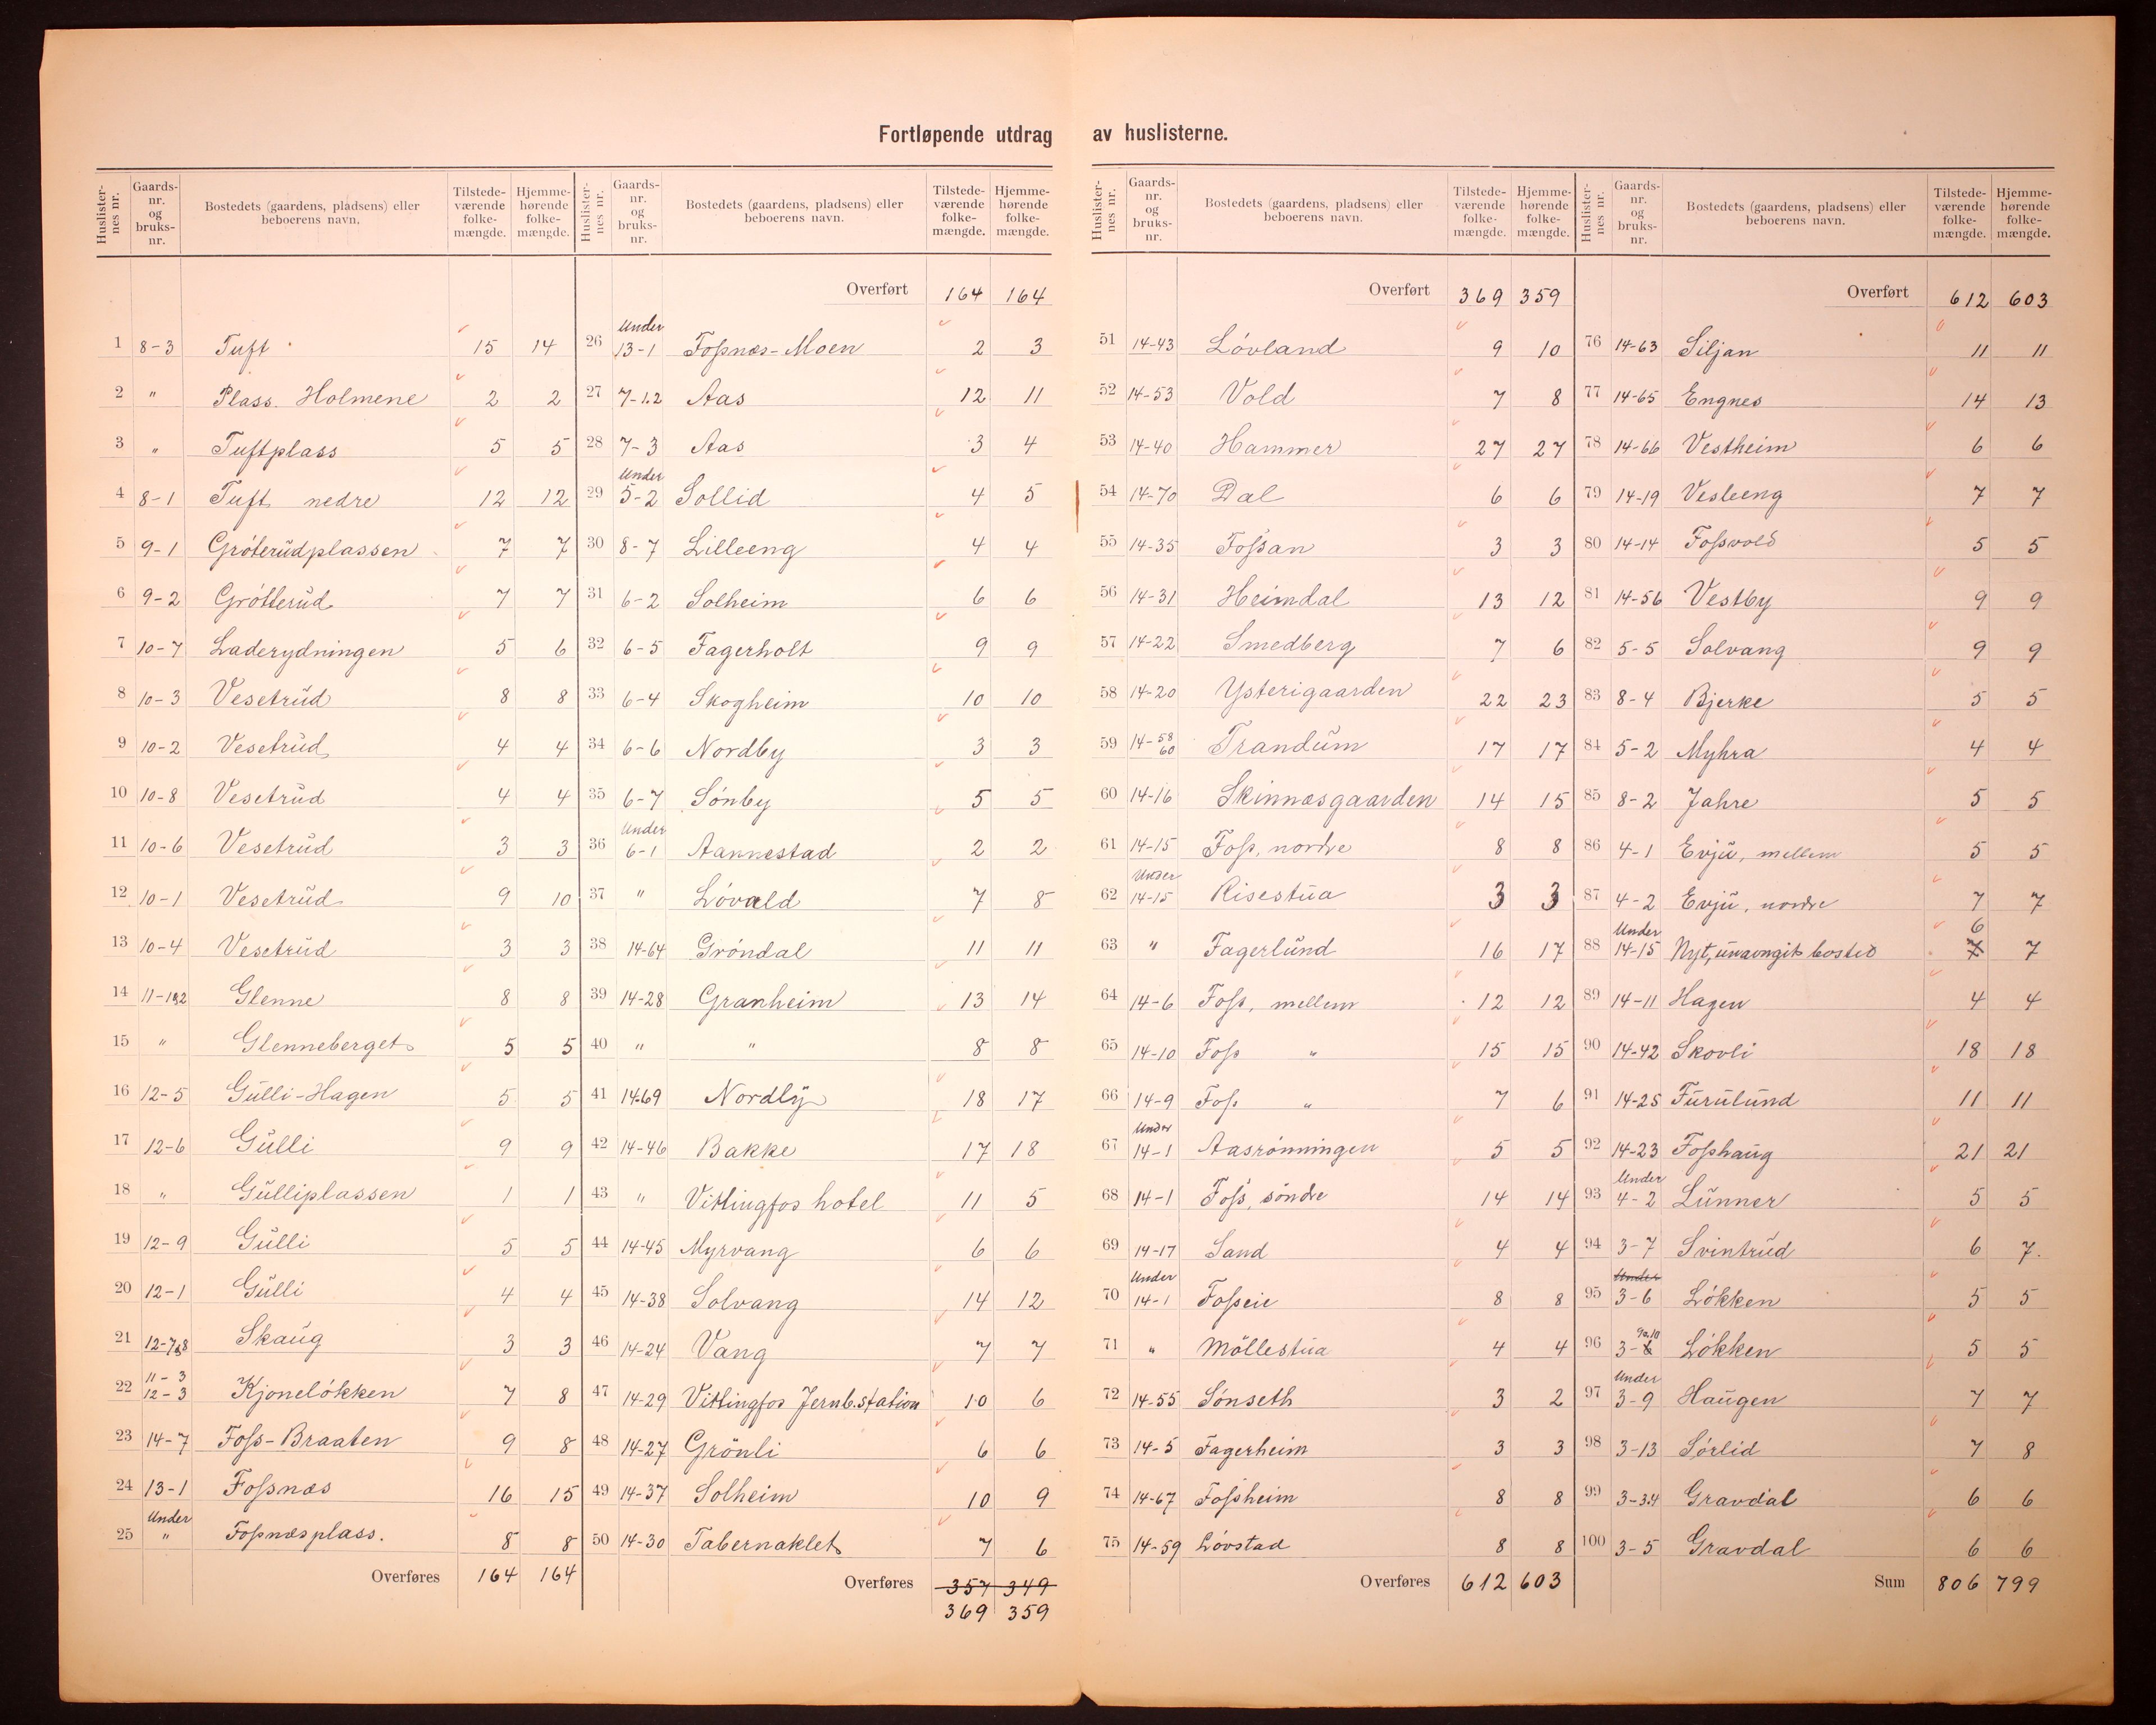 Fortløpende utdrag av huslisterne.
Huslisternes nr. Gaards-nr. og bruks-nr. Bostedets (gaardens, pladsens) eller beboerens navn. Tilstedeværende folkemængde. Hjemmehørende folkemængde.
1 8-3 Tuft 15 14
2 " Plass. Holmene 2 2
3 " Tuftplass 5 5
4 8-1 Tuft nedre 12 12
5 9-1 Gróterüdplassen 7 7
6 9-2 Grótterüd 7 7
7 10-7 Laderydningen 5 6
8 10-3 Vesetrüd 8 8
9 10-2 Vesetrüd 4 4
10 10-8 Vesetrüd 4 4
11 10-6 Vesetrüd 3 3
12 10-1 Vesetrüd 9 10
13 10-4 Vesetrüd 3 3
14 11-1&2 Glenne 8 8
15 " Glenneberget 5 5
16 12-5 Gülli-Hagen 5 5
17 12-6 Gülli 9 9
18 " Gülliplassen 1 1
19 12-9 Gülli 5 5
20 12-1 Gülli 4 4
21 12-7&8 Skaüg 3 3
22 11-3 12-3 Kjonelókken 7 8
23 14-7 Foss-Braaten 9 8
24 13-1 Fossnæs 16 15
25 Under " Fossnæsplass. 8 8
Overføres 164 164
Huslisternes nr. Gaards-nr. og bruks-nr. Bostedets (gaardens, pladsens) eller beboerens navn. Tilstedeværende folkemængde. Hjemmehørende folkemængde.
Overført 164 164
26 Under 13-1 Fossnæs-Moen 2 3
27 7-1.2 Aas 12 11
28 7-3 Aas 3 4
29 Under 5-2 Sollid 4 5
30 8-7 Lilleeng 4 4
31 6-2 Solheim 6 6
32 6-5 Fagerholt 9 9
33 6-4 Skogheim 10 10
34 6-6 Nordby 3 3
35 6-7 Sónby 5 5
36 Under 6-1 Aannestad 2 2
37 " Lóvald 7 8
38 14-64 Gróndal 11 11
39 14-28 Granheim 13 14
40 " " 8 8
41 14-69 Nordly 18 17
42 14-46 Bakke 17 18
43 " Vittingfos hotel 11 5
44 14-45 Myrvang 6 6
45 14-38 Solvang 14 12
46 14-24 Vang 7 7
47 14-29 Vittingfos Jernb.station 10 6
48 14-27 Grönli 6 6
49 14-37 Solheim 10 9
50 14-30 Tabernaklet 7 6
Overføres 357 349
369 359
Huslisternes nr. Gaards-nr. og bruks-nr. Bostedets (gaardens, pladsens) eller beboerens navn. Tilstedeværende folkemængde. Hjemmehørende folkemængde.
Overført 369 359
51 14-43 Lóvland 9 10
52 14-53 Vold 7 8
53 14-40 Hammer 27 27
54 14-70 Dal 6 6
55 14-35 Fossan 3 3
56 14-31 Heimdal 13 12
57 14-22 Smedberg 7 6
58 14-20 Ysterigaarden 22 23
59 14-58 60 Trandüm 17 17
60 14-16 Skinnæsgaarden 14 15
61 14-15 Foss, nordre 8 8
62 Under 14-15 Risestüa 3 3
63 " Fagerlünd 16 17
64 14-6 Foss, mellem 12 12
65 14-10 Foss " 15 15
66 14-9 Foss " 7 6
67 Under 14-1 Aasrönningen 5 5
68 14-1 Foss, söndre 14 14
69 14-17 Sand 4 4
70 Under 14-1 Fosseie 8 8
71 " Möllestüa 4 4
72 14-55 Sónseth 3 2
73 14-5 Fagerheim 3 3
74 14-67 Fossheim 8 8
75 14-59 Lóvstad 8 8
Overføres 612 603
Huslisternes nr. Gaards-nr. og bruks-nr. Bostedets (gaardens, pladsens) eller beboerens navn. Tilstedeværende folkemængde. Hjemmehørende folkemængde.
Overført 612 603
76 14-63 Siljan 11 11
77 14-65 Engnes 14 13
78 14-66 Vestheim 6 6
79 14-19 Vesleeng 7 7
80 14-14 Fossvold 5 5
81 14-56 Vestby 9 9
82 5-5 Solvang 9 9
83 8-4 Bjerke 5 5
84 5-2 Myhra 4 4
85 8-2 Jahre 5 5
86 4-1 Evjü, mellem 5 5
87 4-2 Evjü, nordre 7 7
88 Under 14-15 Nyt, unavngit bosted 7 6 7
89 14-11 Hagen 4 4
90 14-42 Skovli 18 18
91 14-25 Fürülünd 11 11
92 14-23 Fosshaüg 21 21
93 Under 4-2 Lünner 5 5
94 3-7 Svintrüd 6 7.
95 Under 3-6 Lökken 5 5
96 3- 9a.10 Lókken 5 5
97 Under 3-9 Haügen 7 7
98 3-13 Sórlid 7 8
99 3-3.4 Gravdal 6 6
100 3-5 Gravdal 6 6
Sum 806 799